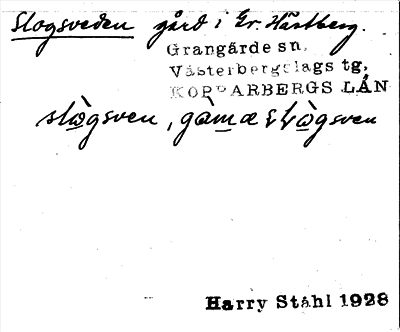 Slogsveden gård i Gr. Hästberg.
Grangärde sn,
Västerbergslags tg,
KOPPARBERGS LÄN
slògsven, gàmæ slògsven
Harry Ståhl 1928